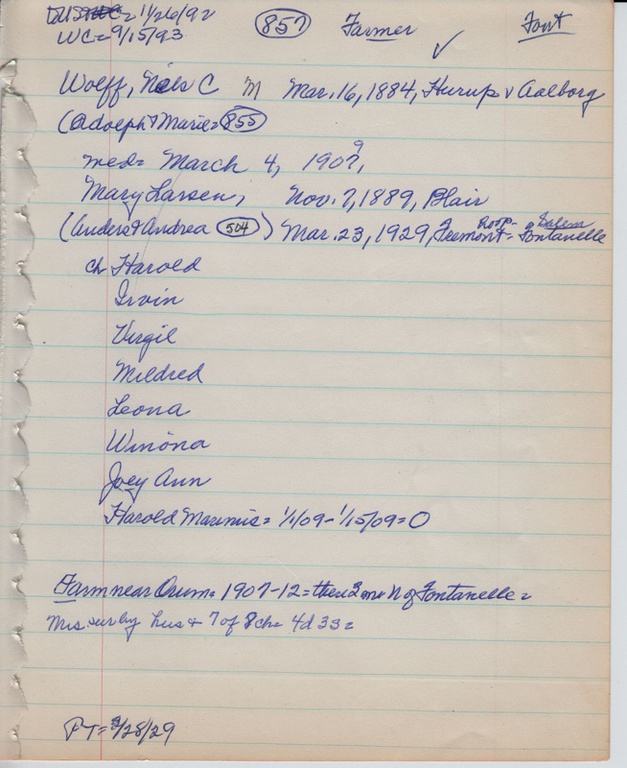 11/26/92 857 Farmer ✓ Font
WC= 9/15/93
Wolff, Niels C M Mar. 16, 1884, Hurup v Aalborg
(Adolph & Marie= 855)
med= March 4, 190?, 9
Mary Larsen, Nov. 7, 1889, Blair
(Anders & Andrea 504) Mar. 23, 1929, Fremont Hosp- = Salem Fontanelle
ch Harold
Irvin
Virgil
Mildred
Leona
Winona
Joey Ann
Harold Marinus= 1/1/09-1/15/09=0
Farm near Orum. 1907-12= then 2 mi N of Fontanelle=
Mrs sur by hus & 7 of 8 ch= 4d 3s=
PT= /28/29